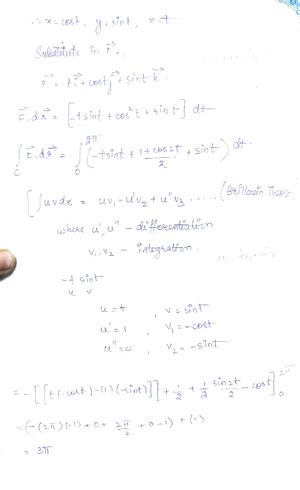 ∴ x = cost, y = sint, z = t
Substitute in r⃗.
F⃗ = t i⃗ + cost j⃗ + sint k⃗
F⃗. dr⃗ = [-tsint + cos²t + sint] dt
∫_C F⃗.dr⃗ = ∫_0^{2π} (-tsint + (1+cos2t)/2 + sint) dt
[∫uvdx = uv₁ - u'v₂ + u''v₃ ..... (
where u', u'' - differentiation
v₁, v₂ - integration.
-t sint
u v
u = t , v = sint
u' = 1 , v₁ = -cost
u'' = 0 , v₂ = -sint
= -[[t(-cost) - (1)(-sint)]] + 1/2 + 1/2 sin2t/2 - cost]_0^{2π}
= (-(2π)(-1) + 0 + 2π/2 + 0 - 1) + (1)
= 3π